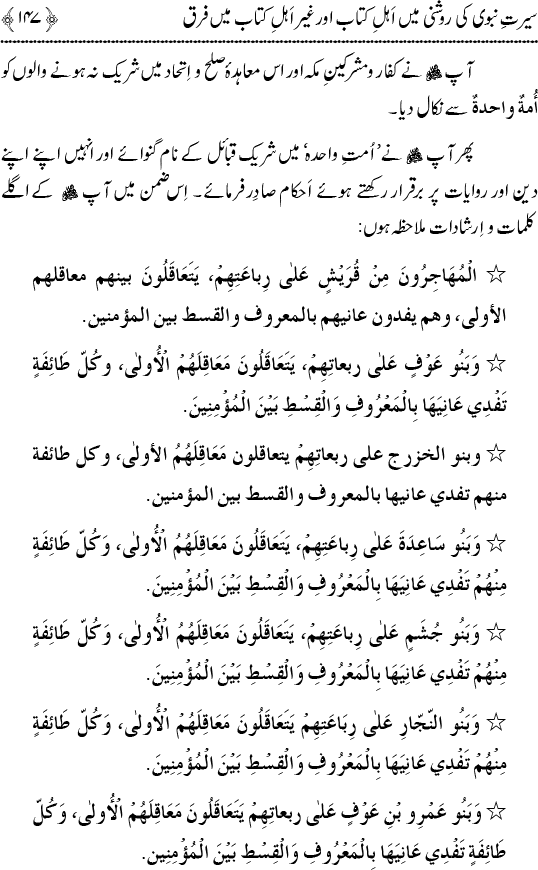 سیرتِ نبوی کی روشنی میں اَہلِ کتاب اور غیر اَہلِ کتاب میں فرق ﴿۱۴۷﴾
آپ ﷺ نے کفار و مشرکینِ مکہ اور اس معاہدۂ صلح و اِتحاد میں شریک نہ ہونے والوں کو
اُمةٌ واحدةٌ سے نکال دیا۔
پھر آپ ﷺ نے ’اُمتِ واحدہ‘ میں شریک قبائل کے نام گنوائے اور انہیں اپنے اپنے
دین اور روایات پر برقرار رکھتے ہوئے اَحکام صادِر فرمائے۔ اِس ضمن میں آپ ﷺ کے اگلے
کلمات و اِرشادات ملاحظہ ہوں:
☆ الْمُهَاجِرُونَ مِنْ قُرَيْشٍ عَلٰى رِبَاعَتِهِمْ، يَتَعَاقَلُونَ بينهم معاقلهم
الأولى، وهم يفدون عانيهم بالمعروف والقسط بين المؤمنين.
☆ وَبَنُو عَوْفٍ عَلٰى ربعاتِهِمْ، يَتَعَاقَلُونَ مَعَاقِلَهُمُ الْأُولٰى، وَكُلّ طَائِفَةٍ
تَفْدِي عَانِيَهَا بِالْمَعْرُوفِ وَالْقِسْطِ بَيْنَ الْمُؤْمِنِينَ.
☆ وبنو الخزرج على ربعاتِهِمْ يتعاقلون مَعَاقِلَهُمُ الأولٰى، وكل طائفة
منهم تفدي عانيها بالمعروف والقسط بين المؤمنين.
☆ وَبَنُو سَاعِدَةَ عَلٰى رِبَاعَتِهِمْ، يَتَعَاقَلُونَ مَعَاقِلَهُمُ الْأُولٰى، وَكُلّ طَائِفَةٍ
مِنْهُمْ تَفْدِي عَانِيَهَا بِالْمَعْرُوفِ وَالْقِسْطِ بَيْنَ الْمُؤْمِنِينَ.
☆ وَبَنُو جُشَمٍ عَلٰى رِبَاعَتِهِمْ، يَتَعَاقَلُونَ مَعَاقِلَهُمُ الْأُولٰى، وَكُلّ طَائِفَةٍ
مِنْهُمْ تَفْدِي عَانِيَهَا بِالْمَعْرُوفِ وَالْقِسْطِ بَيْنَ الْمُؤْمِنِينَ.
☆ وَبَنُو النّجّارِ عَلٰى رِبَاعَتِهِمْ يَتَعَاقَلُونَ مَعَاقِلَهُمُ الْأُولٰى، وَكُلّ طَائِفَةٍ
مِنْهُمْ تَفْدِي عَانِيَهَا بِالْمَعْرُوفِ وَالْقِسْطِ بَيْنَ الْمُؤْمِنِينَ.
☆ وَبَنُو عَمْرِو بْنِ عَوْفٍ عَلٰى ربعاتِهِمْ يَتَعَاقَلُونَ مَعَاقِلَهُمُ الْأُولٰى، وَكُلّ
طَائِفَةٍ تَفْدِي عَانِيَهَا بِالْمَعْرُوفِ وَالْقِسْطِ بَيْنَ الْمُؤْمِنِينَ.